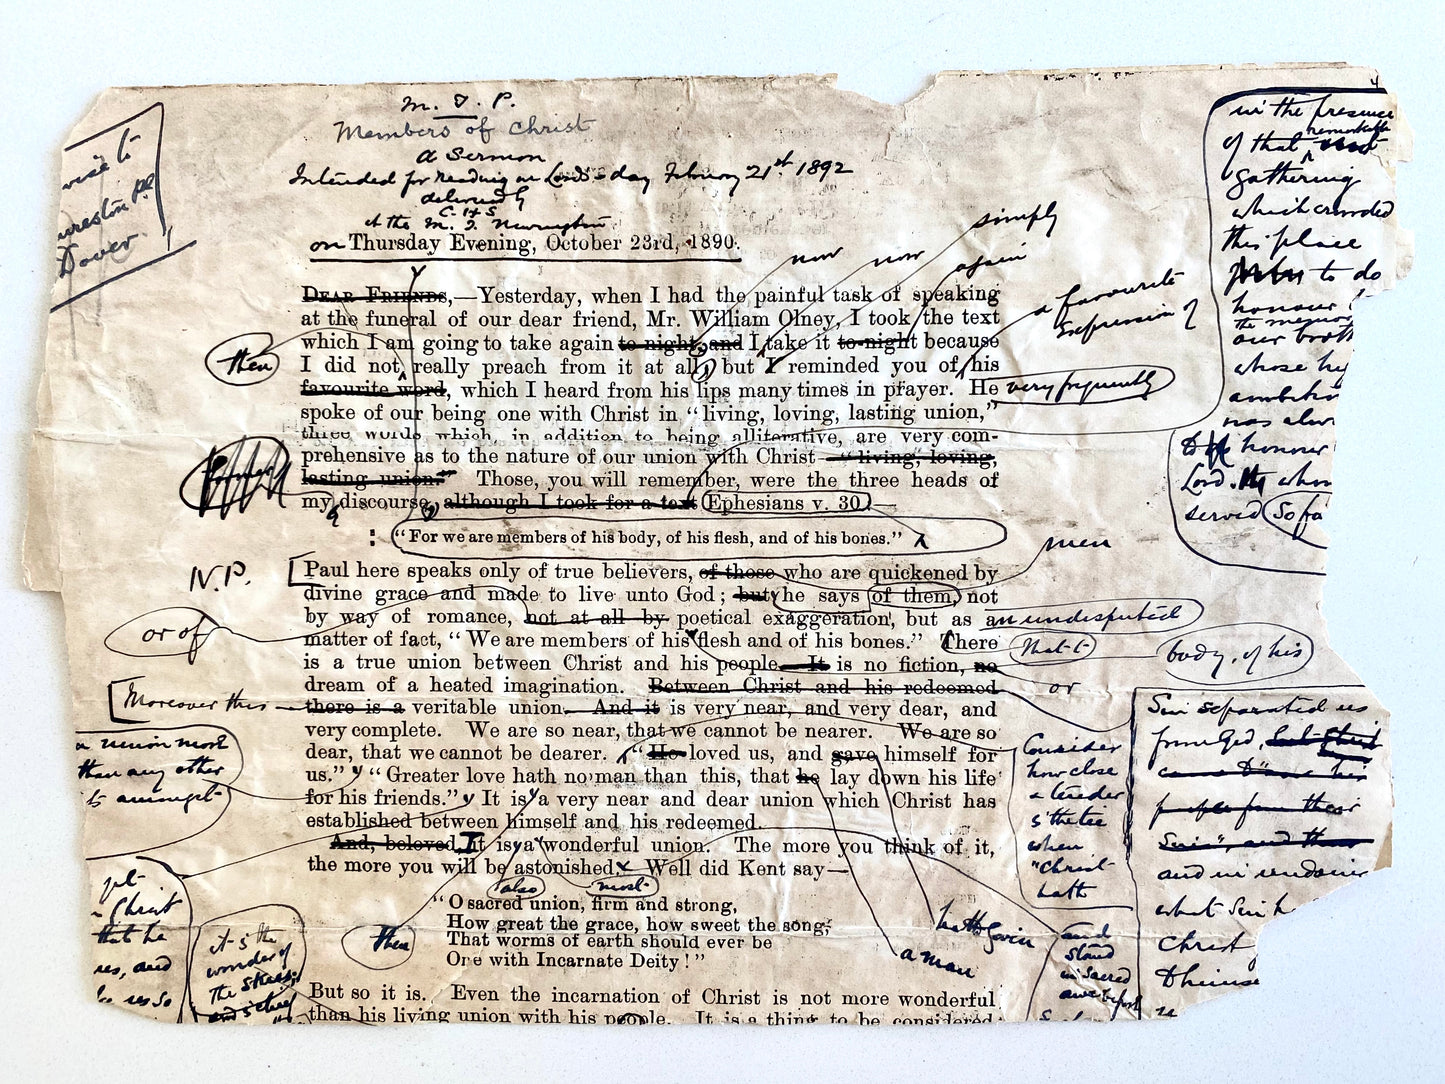 M. T. P.
Members of Christ
A Sermon
Intended for Reading on Lord's-day February 21st 1892
delivered by
C. H S
at the M. T. Newington
on Thursday Evening, October 23rd, 1890.
Dover.
simply
now
now
again
DEAR FRIENDS,—Yesterday, when I had the painful task of speaking
at the funeral of our dear friend, Mr. William Olney, I took the text
which I am going to take again to-night; and I take it to-night because
I did not really preach from it at all, but I reminded you of his
favourite word, which I heard from his lips many times in prayer. He
spoke of our being one with Christ in "living, loving, lasting union,"
three words which, in addition to being alliterative, are very com-
prehensive as to the nature of our union with Christ—"living, loving,
lasting union." Those, you will remember, were the three heads of
my discourse, although I took for a text Ephesians v. 30.—
: "For we are members of his body, of his flesh, and of his bones."
then
a favourite
expression of
very frequently
in the presence
of that remarkable
gathering
which crowded
this place
to do
honour
the memory
our broth
whose
ambition
was
honour
Lord. whom
served So
men
N.P.
Paul here speaks only of true believers, of those who are quickened by
divine grace and made to live unto God; but he says of them, not
by way of romance, not at all by poetical exaggeration, but as an undisputed
matter of fact, "We are members of his flesh and of his bones." There
is a true union between Christ and his people. It is no fiction, no
dream of a heated imagination. Between Christ and his redeemed
there is a veritable union. And it is very near, and very dear, and
very complete. We are so near, that we cannot be nearer. We are so
dear, that we cannot be dearer. "He loved us, and gave himself for
us." "Greater love hath no man than this, that he lay down his life
for his friends." It is a very near and dear union which Christ has
established between himself and his redeemed.
And, beloved, It is a wonderful union. The more you think of it,
the more you will be astonished. Well did Kent say—
or of
that
body, of his
or
Moreover this
a union more
than any other
amongst
Consider
how close
a tender
is the tie
when
"Christ
hath
Sin separated us
from God,
and in
what Sin
Christ
also
most
"O sacred union, firm and strong,
How great the grace, how sweet the song,
That worms of earth should ever be
One with Incarnate Deity!"
then
hath given
a man
Christ
that he
and
it is the
wonder of
the
and
stand
in sacred
awe before
But so it is. Even the incarnation of Christ is not more wonderful
than his living union with his people. It is a thing to be considered